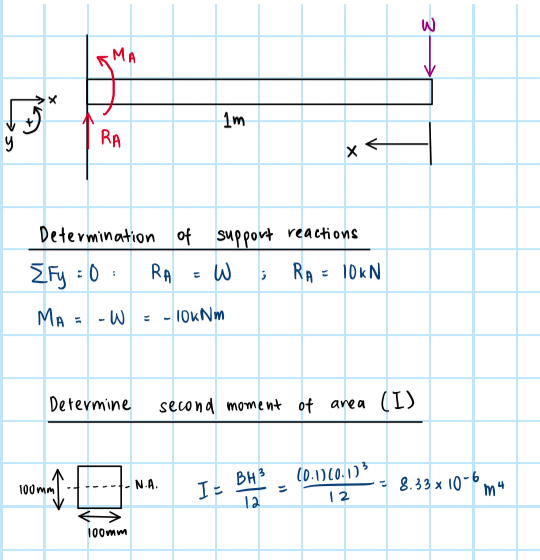 W
MA
x
+
y
RA
1m
x
Determination of support reactions
ΣFy = 0 : RA = W ; RA = 10kN
MA = -W = -10kNm
Determine second moment of area (I)
100mm
N.A.
100mm
I = BH³/12 = (0.1)(0.1)³/12 = 8.33 x 10⁻⁶ m⁴